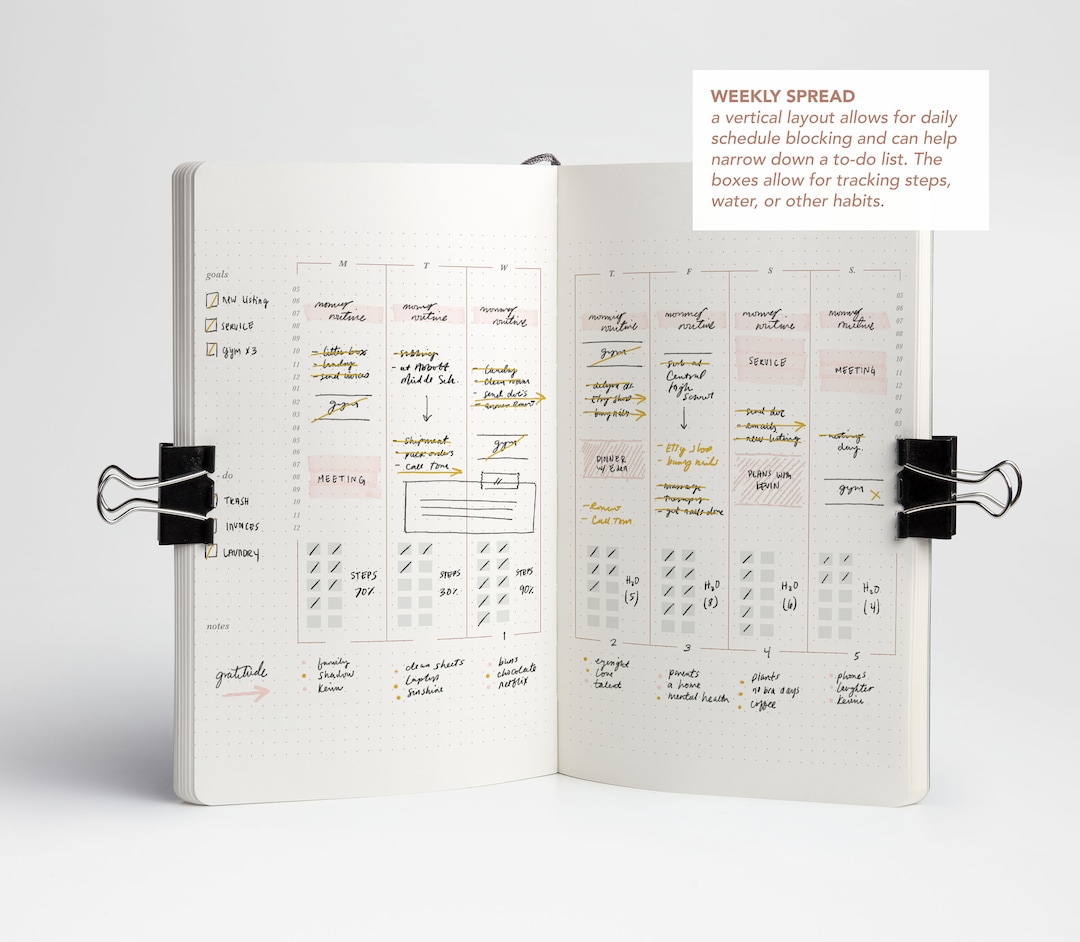 WEEKLY SPREAD
a vertical layout allows for daily
schedule blocking and can help
narrow down a to-do list. The
boxes allow for tracking steps,
water, or other habits.
goals
new listing
SERVICE
gym x3
- do
TRASH
INVOICES
LAUNDRY
notes
gratitude
05
06
07
08
09
10
11
12
01
02
03
04
05
06
07
08
09
10
11
12
M
morning
routine
- litter box
- laundry
- send invoices
gym
MEETING
STEPS
70%
family
Shadow
Kevin
T
morning
routine
- subbing
- at Abbott
Middle Sch.
- shipment
- pack orders
- call Tone
STEPS
30%
clean sheets
laptops
sunshine
W
morning
routine
- laundry
- clean room
- send doc's
gym
STEPS
90%
1
buns
chocolate
netflix
T.
morning
routine
gym
- Etsy shop
- buy nails
DINNER
w/ Eden
- Renew
- Call Tom
H₂O
(5)
2
eyesight
love
talent
F
morning
routine
- sub at
Central
High
School
- Etsy shop
- buy nails
- massage
- therapy
- get nails done
H₂O
(8)
3
parents
a home
mental health
S
morning
routine
SERVICE
- send doc
- emails
- new listing
PLANS WITH
KEVIN
H₂O
(6)
4
plants
no bra days
coffee
S.
morning
routine
MEETING
day.
gym x
H₂O
(4)
5
phones
laughter
Kevin
05
06
07
08
09
10
11
12
01
02
03